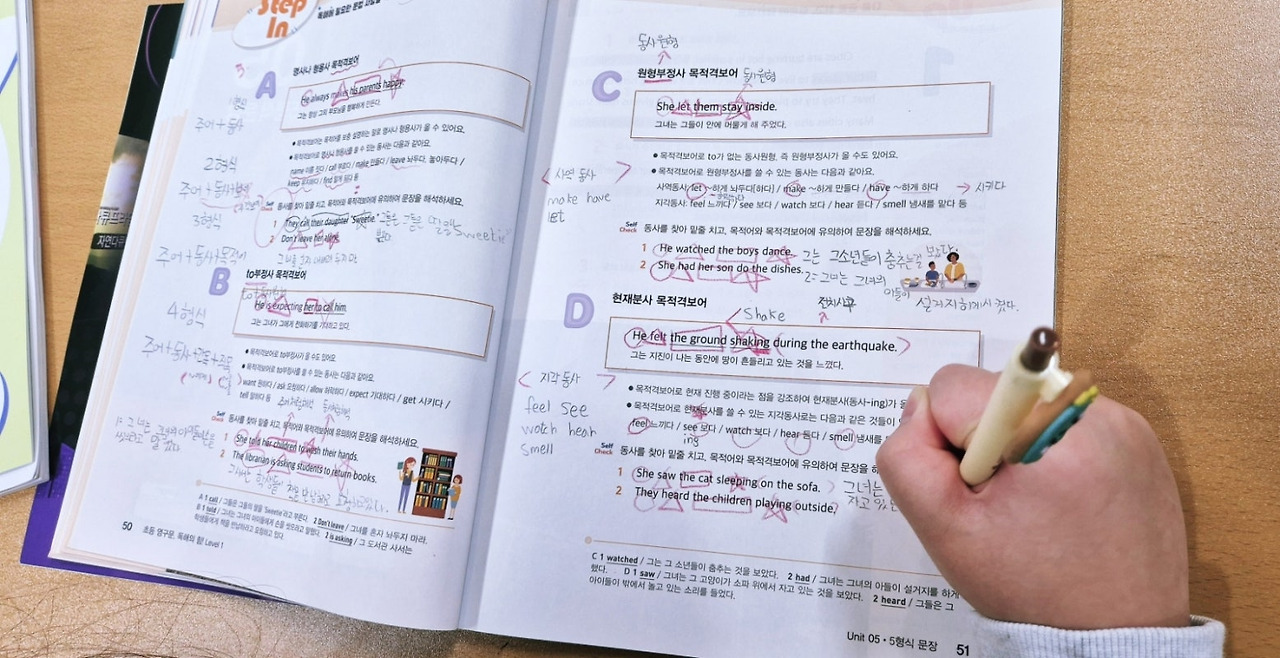 Step
In
독해에 필요한 문법 사항을
A
명사나 형용사 목적격보어
He always makes his parents happy.
그는 항상 그의 부모님을 행복하게 만든다.
● 목적격보어는 목적어를 보충 설명하는 말로 명사나 형용사가 올 수 있어요.
● 목적격보어로 명사나 형용사를 쓸 수 있는 동사는 다음과 같아요.
name 이름 짓다 / call 부르다 / make 만들다 / leave 놔두다, 놓아두다 /
keep 유지하다 / find 알게 되다 등
Self Check 동사를 찾아 밑줄 치고, 목적어와 목적격보어에 유의하여 문장을 해석하세요.
1 They call their daughter 'Sweetie'.
2 Don't leave her alone.
주어+동사
2형식
3형식
주어+동사+목적어
4형식
B
to부정사 목적격보어
He is expecting her to call him.
그는 그녀가 그에게 전화하기를 기대하고 있다.
● 목적격보어로 to부정사가 올 수도 있어요.
● 목적격보어로 to부정사를 쓸 수 있는 동사는 다음과 같아요.
want 원하다 / ask 요청하다 / allow 허락하다 / expect 기대하다 / get 시키다 /
tell 말하다 등
Self Check 동사를 찾아 밑줄 치고, 목적어와 목적격보어에 유의하여 문장을 해석하세요.
1 She told her children to wash their hands.
2 The librarian is asking students to return books.
A 1 call / 그들은 그들의 딸을 'Sweetie'라고 부른다. 2 Don't leave / 그녀를 혼자 놔두지 마라.
B 1 told / 그녀는 그녀의 아이들에게 손을 씻으라고 말했다. 2 is asking / 그 도서관 사서는
학생들에게 책을 반납하라고 요청하고 있다.
50 초등 영구문, 독해의 힘! Level 1
동사원형
C
원형부정사 목적격보어 동사원형
She let them stay inside.
그녀는 그들이 안에 머물게 해 주었다.
● 목적격보어로 to가 없는 동사원형, 즉 원형부정사가 올 수도 있어요.
● 목적격보어로 원형부정사를 쓸 수 있는 동사는 다음과 같아요.
사역동사 let ~하게 놔두다[하다] / make ~하게 만들다 / have ~하게 하다 → 시키다
지각동사: feel 느끼다 / see 보다 / watch 보다 / hear 듣다 / smell 냄새를 맡다 등
사역 동사
make have
let
Self Check 동사를 찾아 밑줄 치고, 목적어와 목적격보어에 유의하여 문장을 해석하세요.
1 He watched the boys dance. 그는 그소년들이 춤추는걸 봤다.
2 She had her son do the dishes. 그녀는 그녀의
아들이 설거지하게시켰다.
D
현재분사 목적격보어
Shake
전치사구
He felt the ground shaking during the earthquake.
그는 지진이 나는 동안에 땅이 흔들리고 있는 것을 느꼈다.
지각 동사
feel see
watch hear
smell
● 목적격보어로 현재 진행 중이라는 점을 강조하여 현재분사(동사-ing)가
● 목적격보어로 현재분사를 쓸 수 있는 지각동사로는 다음과 같은 것들이
feel 느끼다 / see 보다 / watch 보다 / hear 듣다 / smell 냄새를
ing
Self Check 동사를 찾아 밑줄 치고, 목적어와 목적격보어에 유의하여 문장을
1 She saw the cat sleeping on the sofa. 그녀는
자고 있는
2 They heard the children playing outside.
C 1 watched / 그는 그 소년들이 춤추는 것을 보았다. 2 had / 그녀는 그녀의 아들이 설거지를 하게
했다. D 1 saw / 그녀는 그 고양이가 소파 위에서 자고 있는 것을 보았다. 2 heard / 그들은 그
아이들이 밖에서 놀고 있는 소리를 들었다.
Unit 05 • 5형식 문장 51